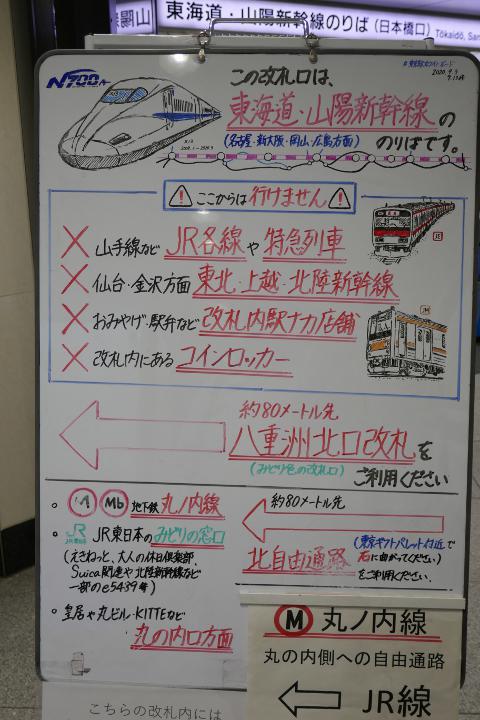 東海道・山陽新幹線のりば(日本橋口)
N700A
2020.9.3
この改札口は、
東海道・山陽新幹線の
(名古屋・新大阪・岡山・広島方面) のりばです。
ここからは行けません
山手線など JR各線や特急列車
JE
仙台・金沢方面 東北・上越・北陸新幹線
おみやげ・駅弁など 改札内駅ナカ店舗
JM
改札内にある コインロッカー
約80メートル先
八重洲北口改札を
(みどり色の改札口)
ご利用ください
M Mb 地下鉄 丸ノ内線
JR JR東日本のみどりの窓口
(えきねっと、大人の休日倶楽部、
Suica関連や北陸新幹線など
一部のe5489等)
皇居や丸ビル・KITTEなど
丸の内口方面
約80メートル先
北自由通路
(東京ギフトパレット付近で
右に曲がってください)
をご利用ください。
M 丸ノ内線
丸の内側への自由通路
JR線
こちらの改札内には